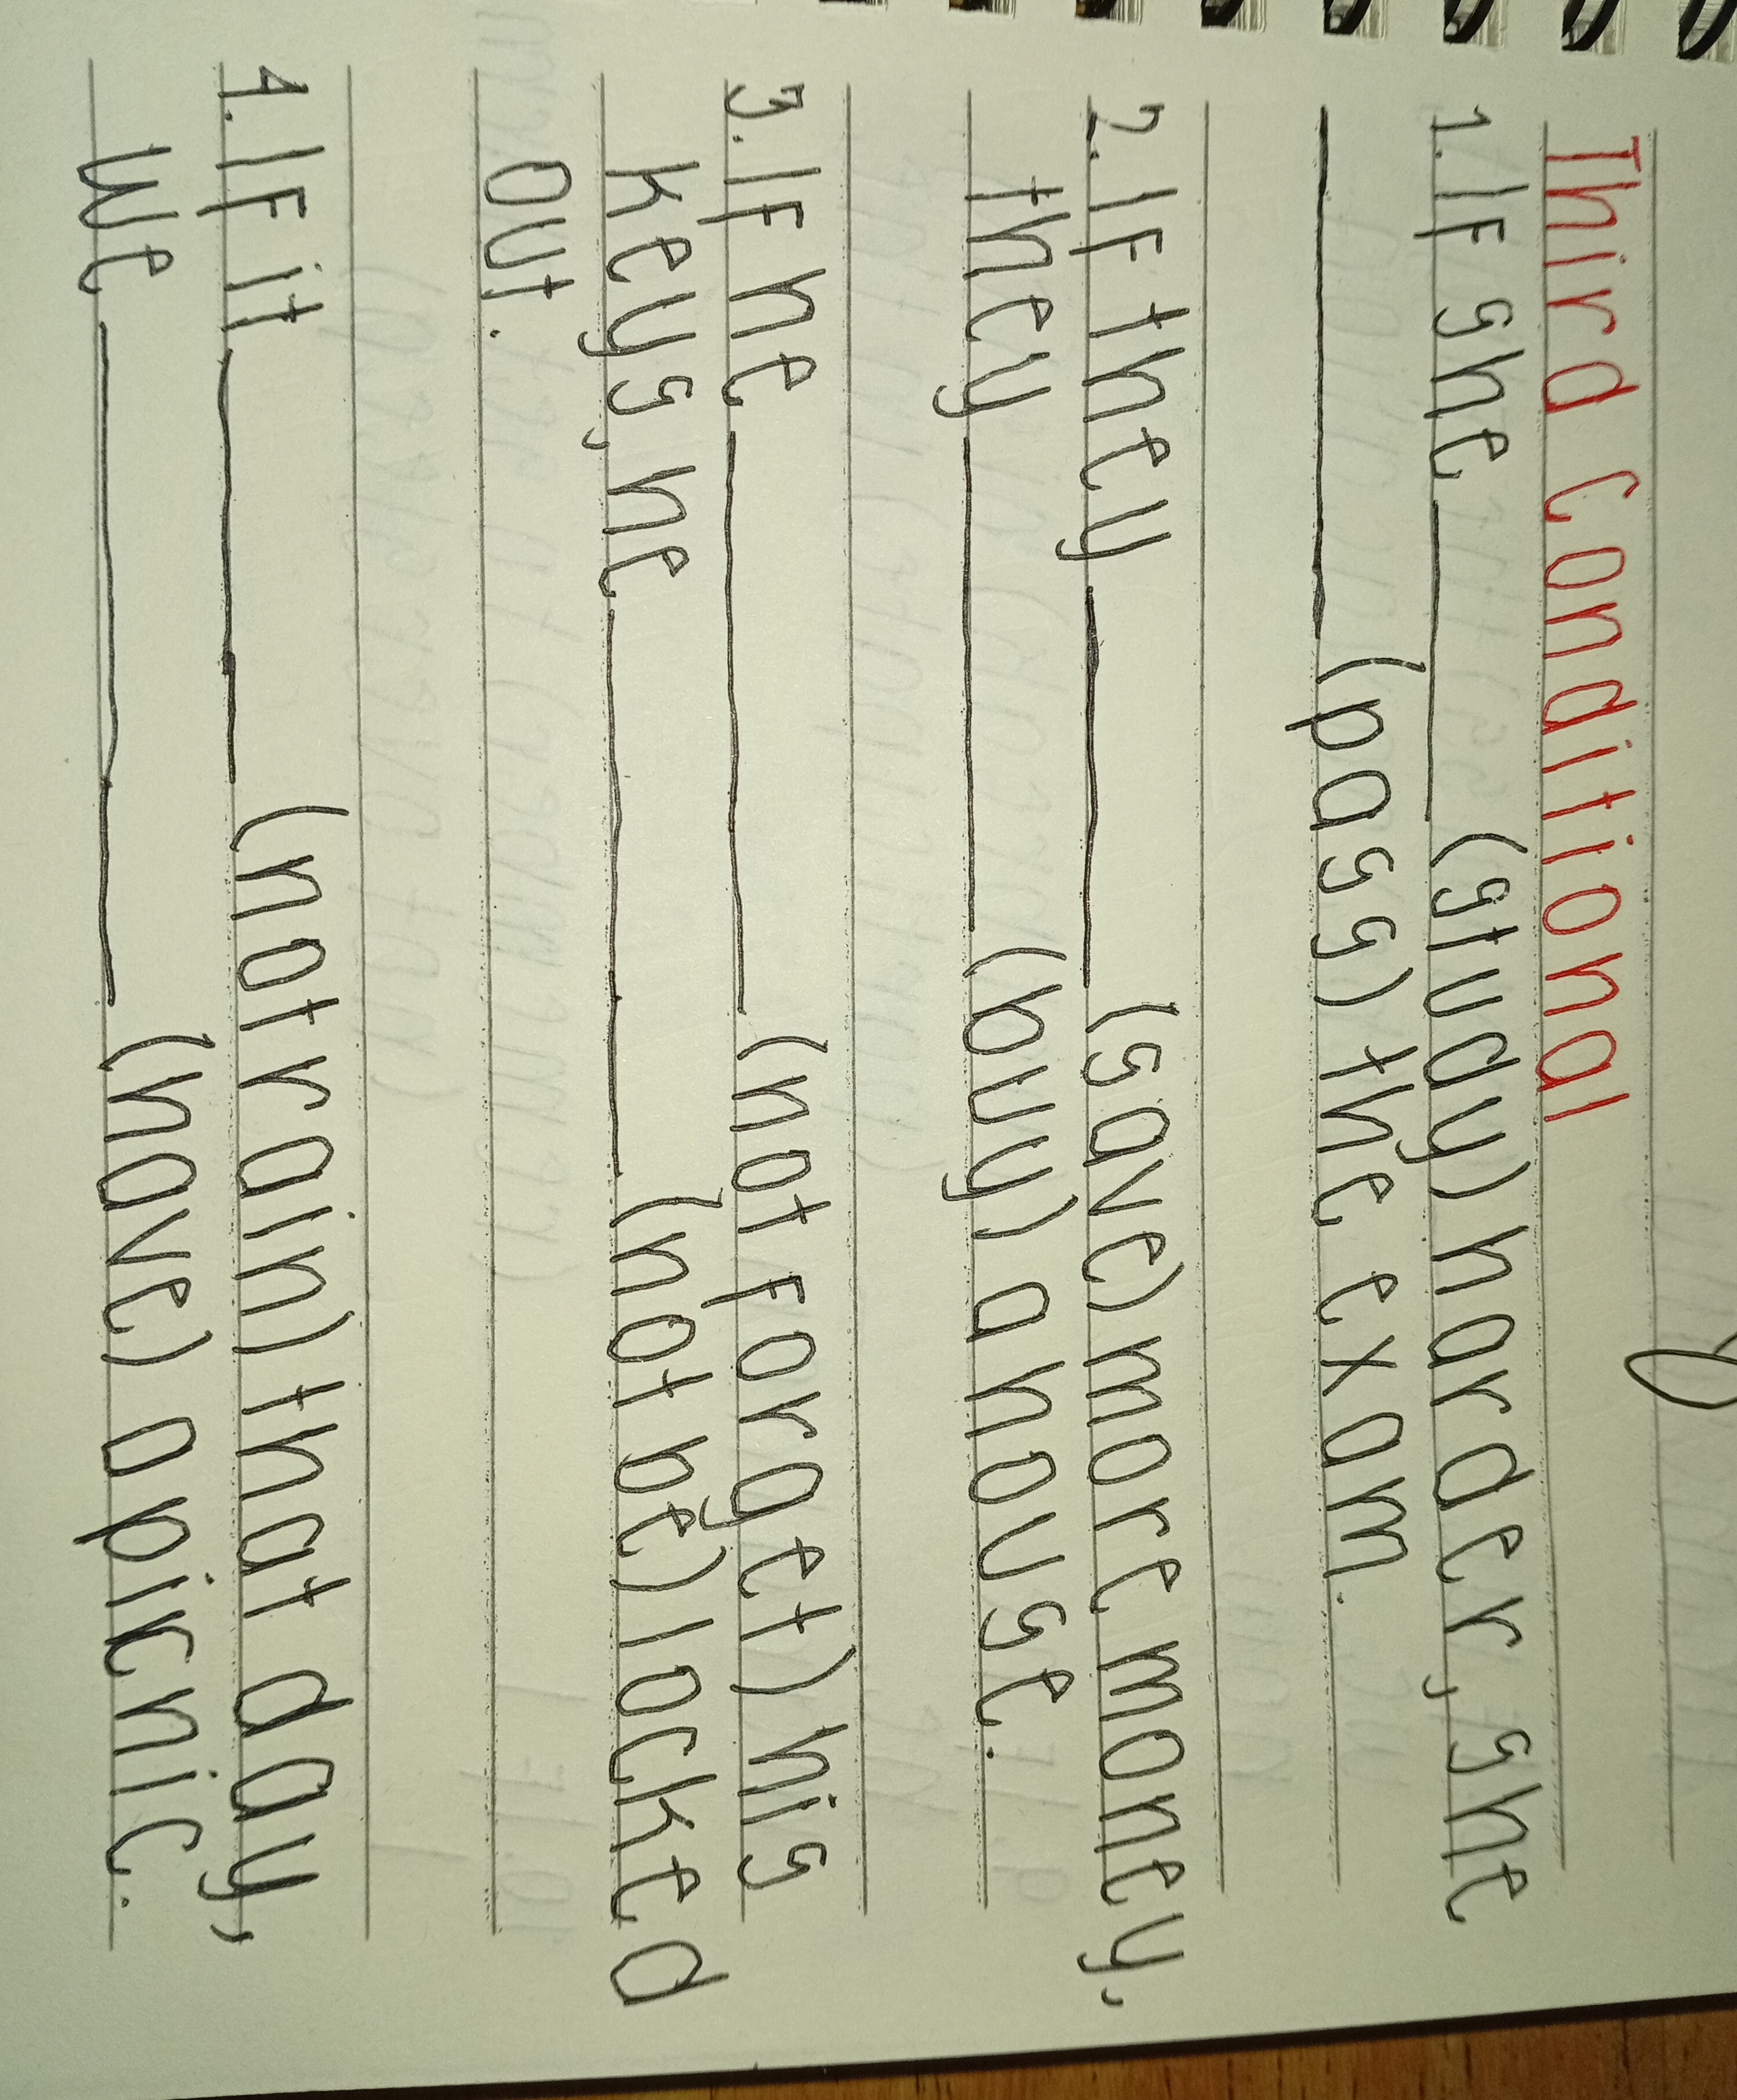 Third Conditional
1. If she ________ (study) harder, she
________ (pass) the exam.
2. If they ________ (save) more money,
they ________ (buy) a house.
3. If he ________ (not forget) his
keys, he ________ (not be) locked
out.
4. If it ________ (not rain) that day,
we ________ (have) a picnic.